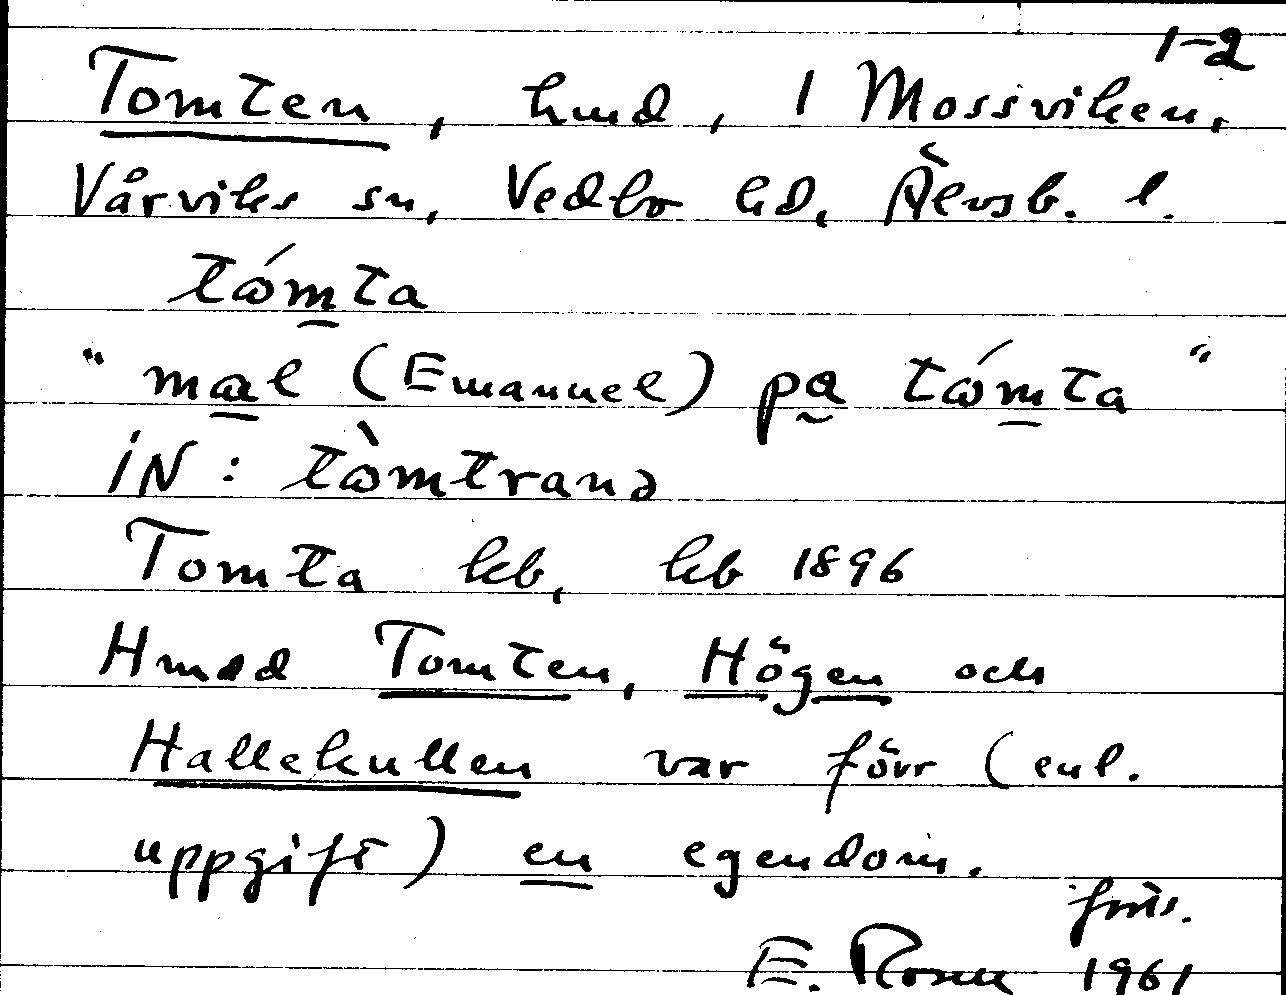 1-2
Tomten, hmd, 1 Mossviken,
Vårviks sn, Vedbo hd, Älvsb. l.
tǿmta
"mal (Emanuel) pa tǿmta"
iN: tòmtrana
Tomta kb, kb 1896
Hmad Tomten, Högen och
Hallekullen var förr (enl.
uppgift) en egendom.
forts.
E. Rosén 1961